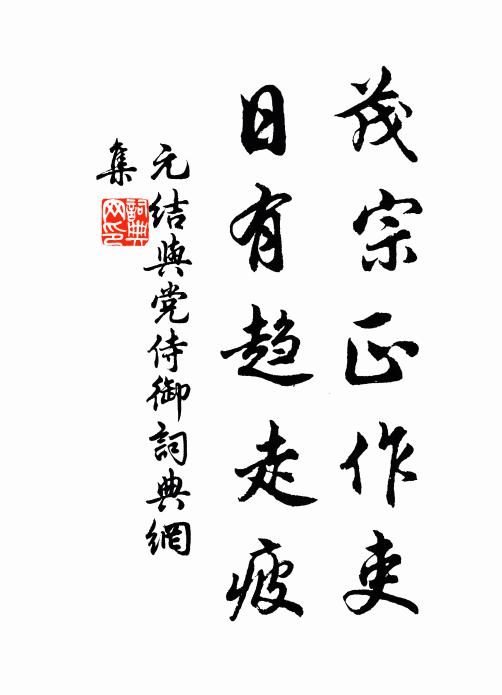 茂宗正作吏
日有趋走疲
元结與党侍御詞典網
集
詞典
网印